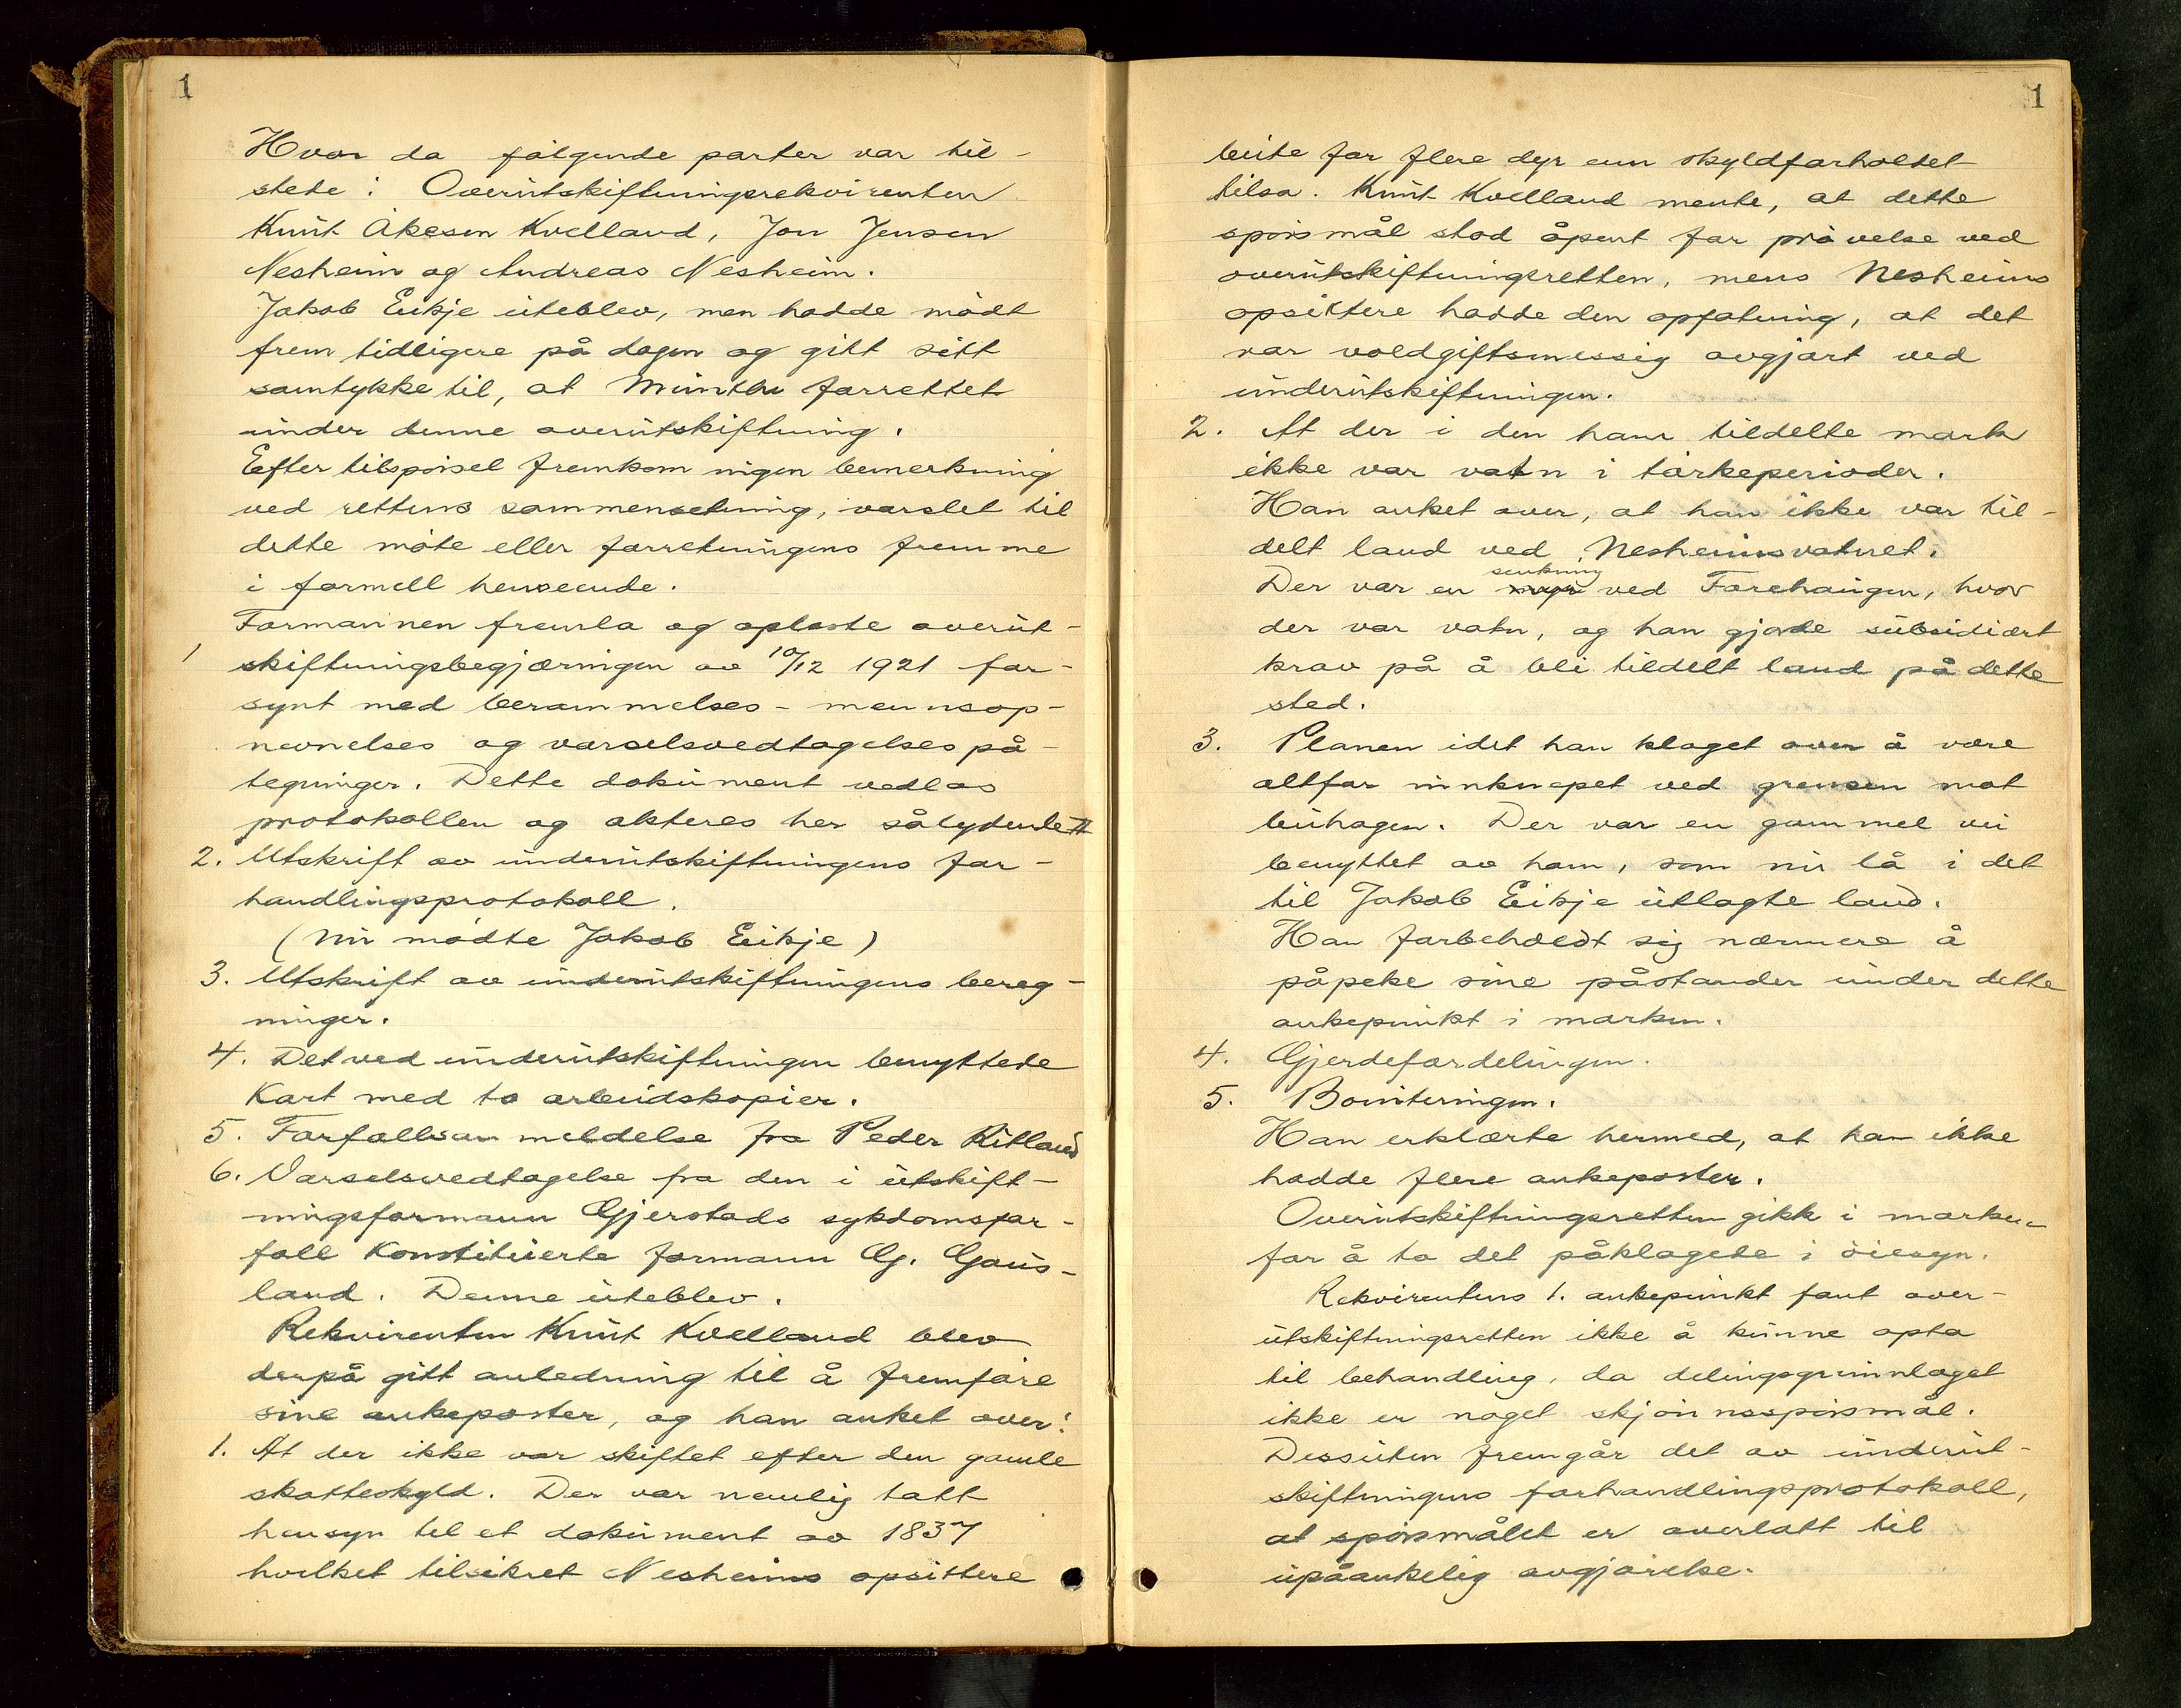 1
Hvor da følgende parter var til-
stede: Overutskiftningsrekvirenten
Knut Åkesen Kvelland, Jon Jensen
Nesheim og Andreas Nesheim.
Jakob Eikje uteblev, men hadde mødt
frem tidligere på dagen og gitt sitt
samtykke til, at Munthe forrettet
under denne overutskiftning.
Eefter tilspørsel fremkom ingen bemerkning
ved rettens sammensetning, varslet til
dette møte eller forretningens fremme
i formell henseende.
Formannen fremla og opleste overut-
1 skiftningsbegjæringen av 10/12 1921 for-
synt med berammelses- mennsop-
nevnelses og varselsvedtagelsespå-
tegninger. Dette dokument vedlas
protokollen og akteres her sålydende #
2. Utskrift av underutskiftningens for-
handlingsprotokoll.
(Nu mødte Jakob Eikje)
3. Utskrift av underutskiftningens bereg-
ninger.
4. Det ved underutskiftningen benyttede
Kart med to arbeidskopier.
5. Forfallsanmeldelse fra Peder Ritland
6. Varselsvedtagelse fra den i utskift-
ningsformann Gjerstads sykdomsfor-
fall Konstituerte formann G. Gaus-
land. Denne uteblev.
Rekvirenten Knut Kvelland blev
derpå gitt anledning til å fremføre
sine ankeposter, og han anket over:
1. At der ikke var skiftet efter den gamle
skatteskyld. Der var nemlig tatt
hensyn til et dokument av 1837
hvilket tilsikret Nesheims opsittere
1
beite for flere dyr enn skyldforholdet
tilsa. Knut Kvelland mente, at dette
spørsmål stod åpent for prøvelse ved
overutskiftningsretten, mens Nesheims
opsittere hadde den opfatning, at det
var voldgiftsmessig avgjort ved
underutskiftningen.
2. At der i den ham tildelte mark
ikke var vatn i tørkeperioder.
Han anket over, at han ikke var til-
delt land ved Nesheimsvatnet.
senkning
Der var en myr ved Forehaugen, hvor
der var vatn, og han gjorde subsidiært
krav på å bli tildelt land på dette
sted.
3. Planen idet han klaget over å være
altfor innknepet ved grensen mot
buhagen. Der var en gammel vei
benyttet av ham, som nu lå i det
til Jakob Eikje utlagte land.
Han forbeholdt sig nærmere å
påpeke sine påstander under dette
ankepunkt i marken.
4. Gjerdefordelingen.
5. Boniteringen.
Han erklærte hermed, at han ikke
hadde flere ankeposter.
Overutskiftningsretten gikk i marken
for å ta det påklagede i øiesyn.
Rekvirentens 1. ankepunkt fant over-
utskiftningsretten ikke å kunne opta
til behandling, da delingsgrunnlaget
ikke er noget skjønnsspørsmål.
Dessuten fremgår det av underut-
skiftningens forhandlingsprotokoll,
at spørsmålet er overlatt til
upåankelig avgjørelse.